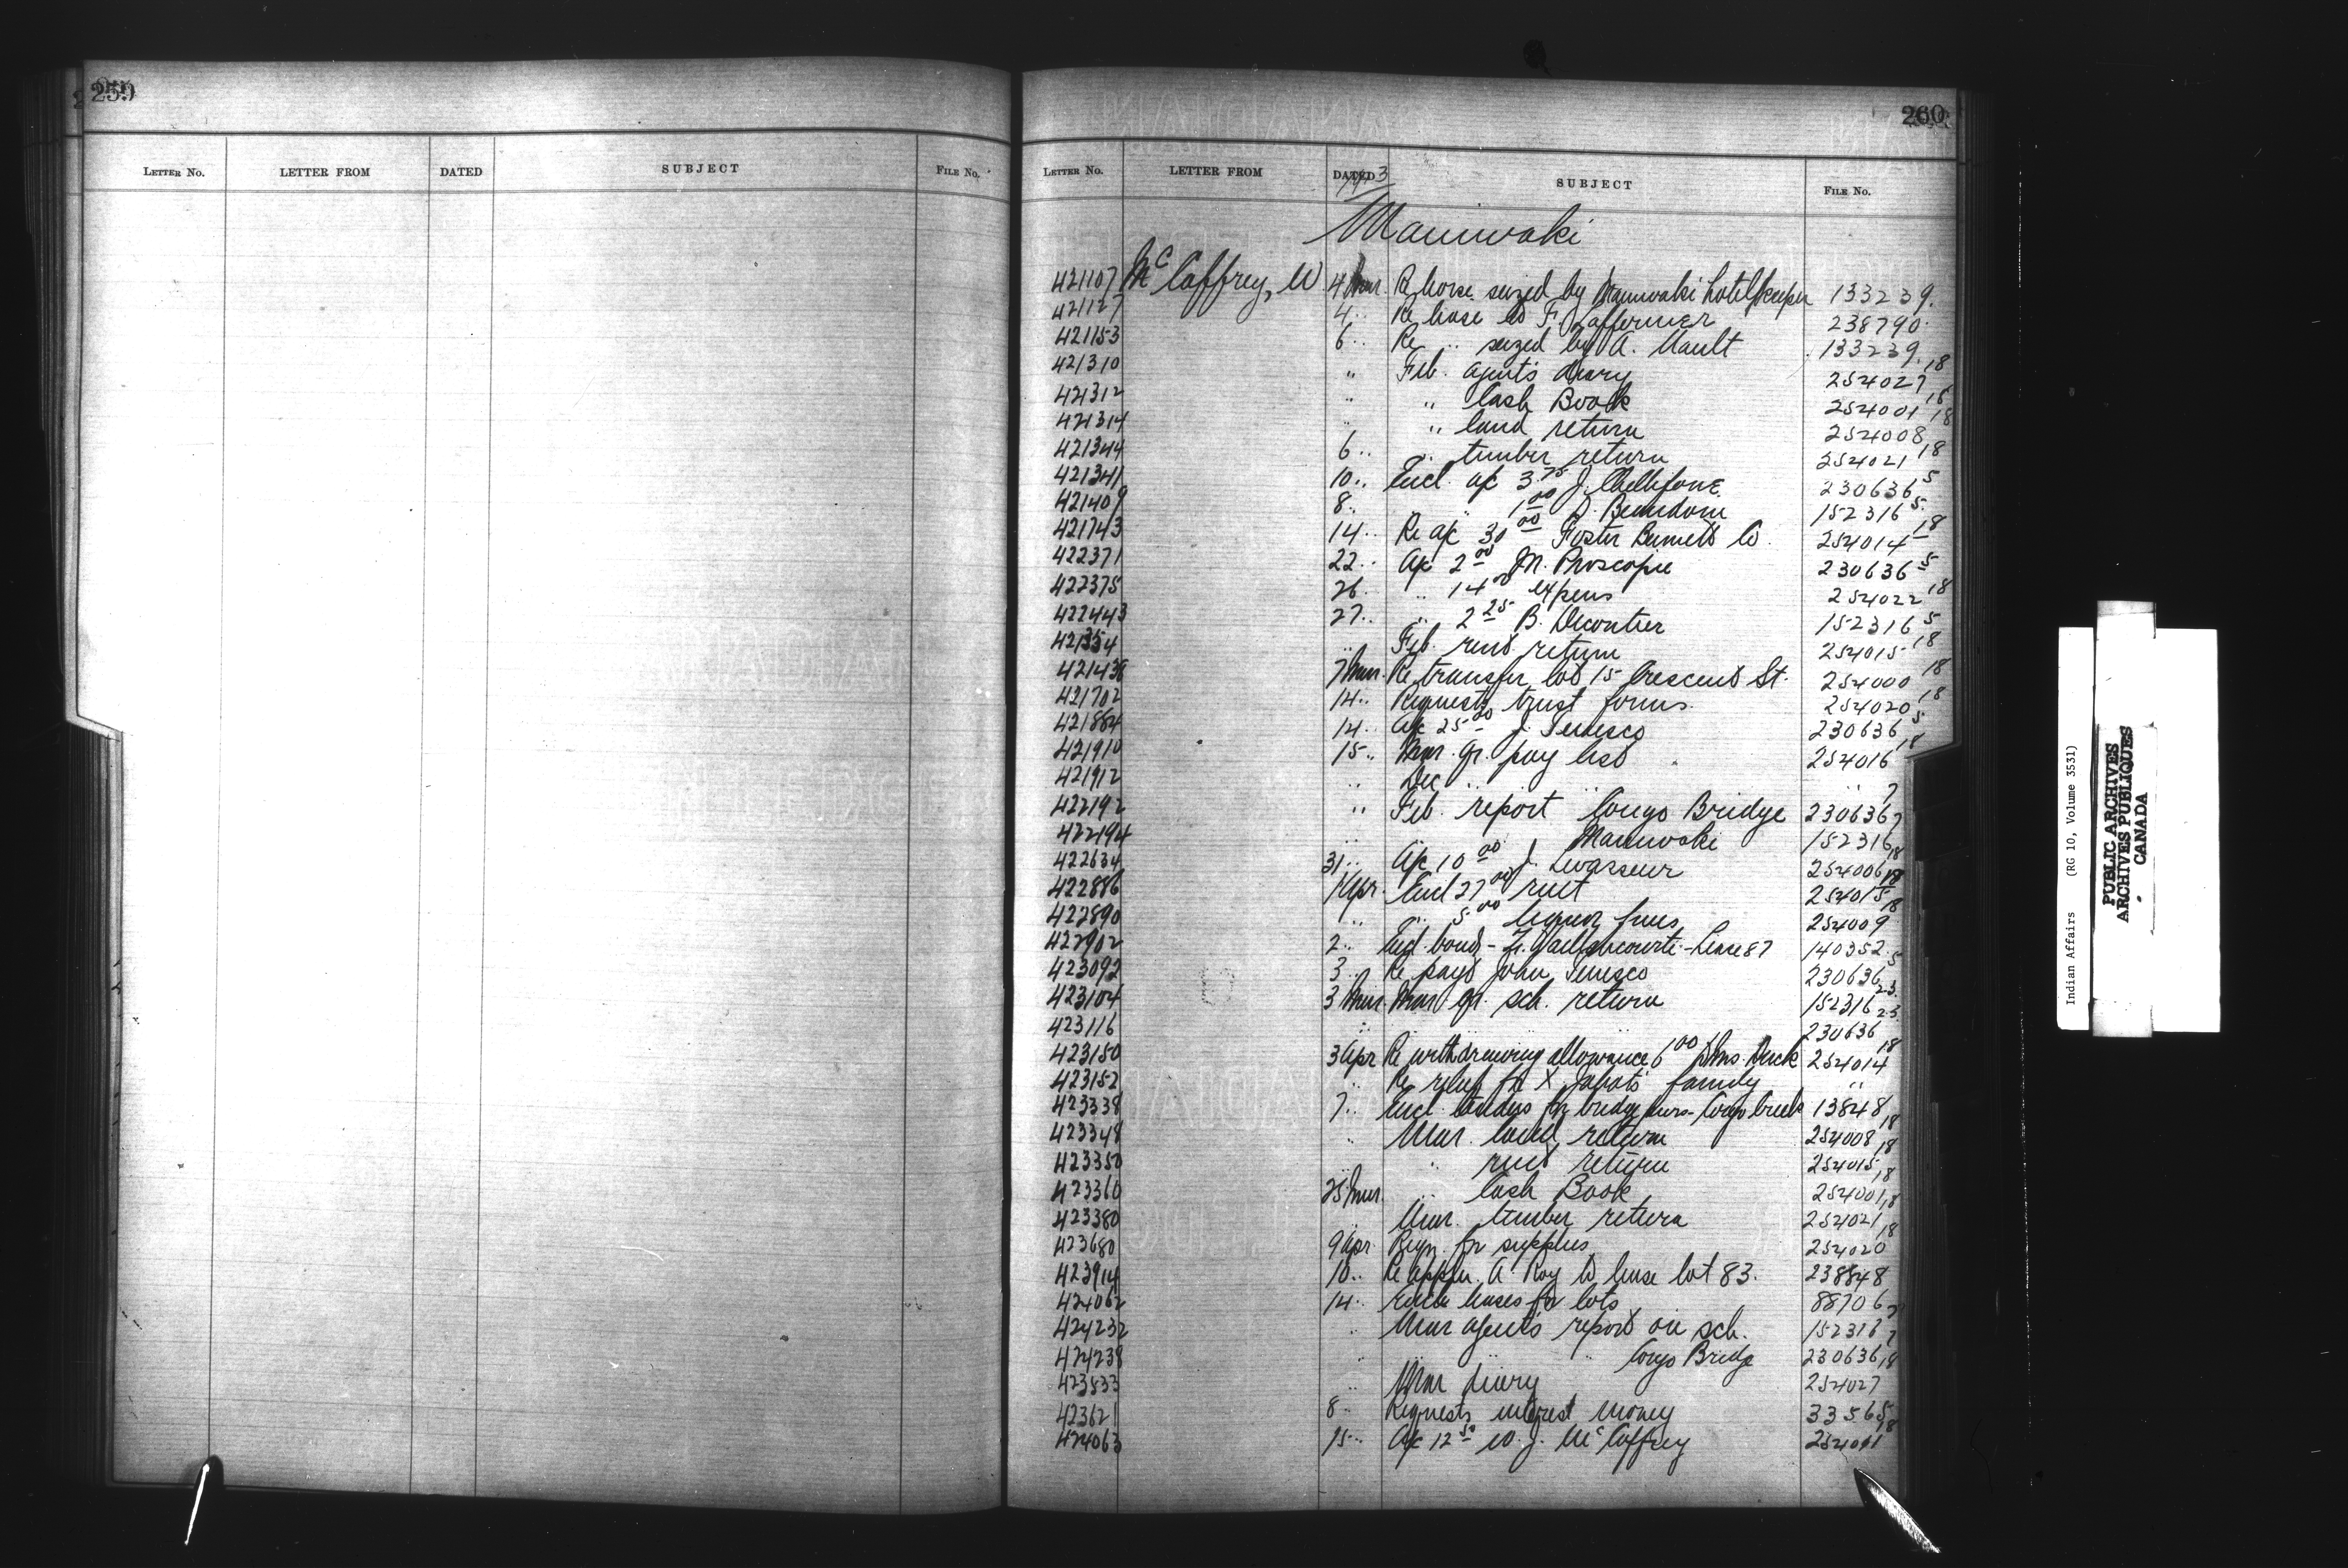 259
LETTER No. LETTER FROM DATED SUBJECT FILE No.
260
LETTER No. LETTER FROM DATED SUBJECT FILE No.
Maniwaki
421107 McCaffrey, W 4 Mar. Re horse seized by Maniwaki hotelkeeper 133239.
421127 4 " Re lease to F. 238790
421153 6 " Re " seized by A. Nault 133239.
421310 " Feb. agents diary 254027 18
421312 " " Cash Book 254001 18
421314 " " land return 254008 18
421344 6 " " timber return 254021 18
421341 10 " Encl. a/c 3.75 J. 230636 5
421409 8 " " 1.00 D. 152316 5
421743 14 " Re a/c 30.00 Foster Co. 254014 18
422371 22 " A/c 2.00 M. 230636 5
422375 26 " " 14.00 expens 254022 18
422443 27 " " 2.25 B. Decontier 152316 5
421354 " Feb. rent return 254015 18
421438 7 Mar. Re transfer lot 15 Crescent St. 254000 18
421702 14 " Requests trust forms 254020 18
421864 14 " A/c 25.00 J. Tenesco 230636 5
421910 15 " Mar. qr. pay list 254016 18
421912 " Dec " " " "
422192 " Feb. report Congo Bridge 230636 7
422194 " " Maniwaki 152316 7
422634 31 " A/c 10.00 J. Levasseur 254006 18
422886 1 Apr. Encl 27.00 rent 254015 18
422890 " " 5.00 liquor fines 254009 18
422902 2 " Encl bond - Lease 87 140352
423092 3 " Re payt John Tenesco 230636 5
423104 3 Mar. Mar qr. sch. return 152316 23
423116 " " " " 230636 23
423150 3 Apr Re withdrawing allowance 6.00 254014 18
423152 " Re relief for X family "
423338 7 " Encl. tenders for bridge Congo Creek 13848
423348 " Mar. land return 254008 18
423350 " " rent return 254015 18
423360 25 Mar. " Cash Book 254001 18
423380 " Mar. timber return 254021 18
423680 9 Apr. Reqn. for supplies 254020 18
423914 10 " Re appln. A. Roy to lease lot 83. 238848
424062 14 " leases for lots 88706
424232 " Mar agents report on sch. 152316 7
424238 " " " Congo Bridge 230636 7
423833 " Mar diary 254027 18
423621 8 " Requests interest money 33565
424063 15 " A/c 12.50 W. J. McCaffrey 254001 18
Indian Affairs (RG 10, Volume 3531)
PUBLIC ARCHIVES
ARCHIVES PUBLIQUES
CANADA